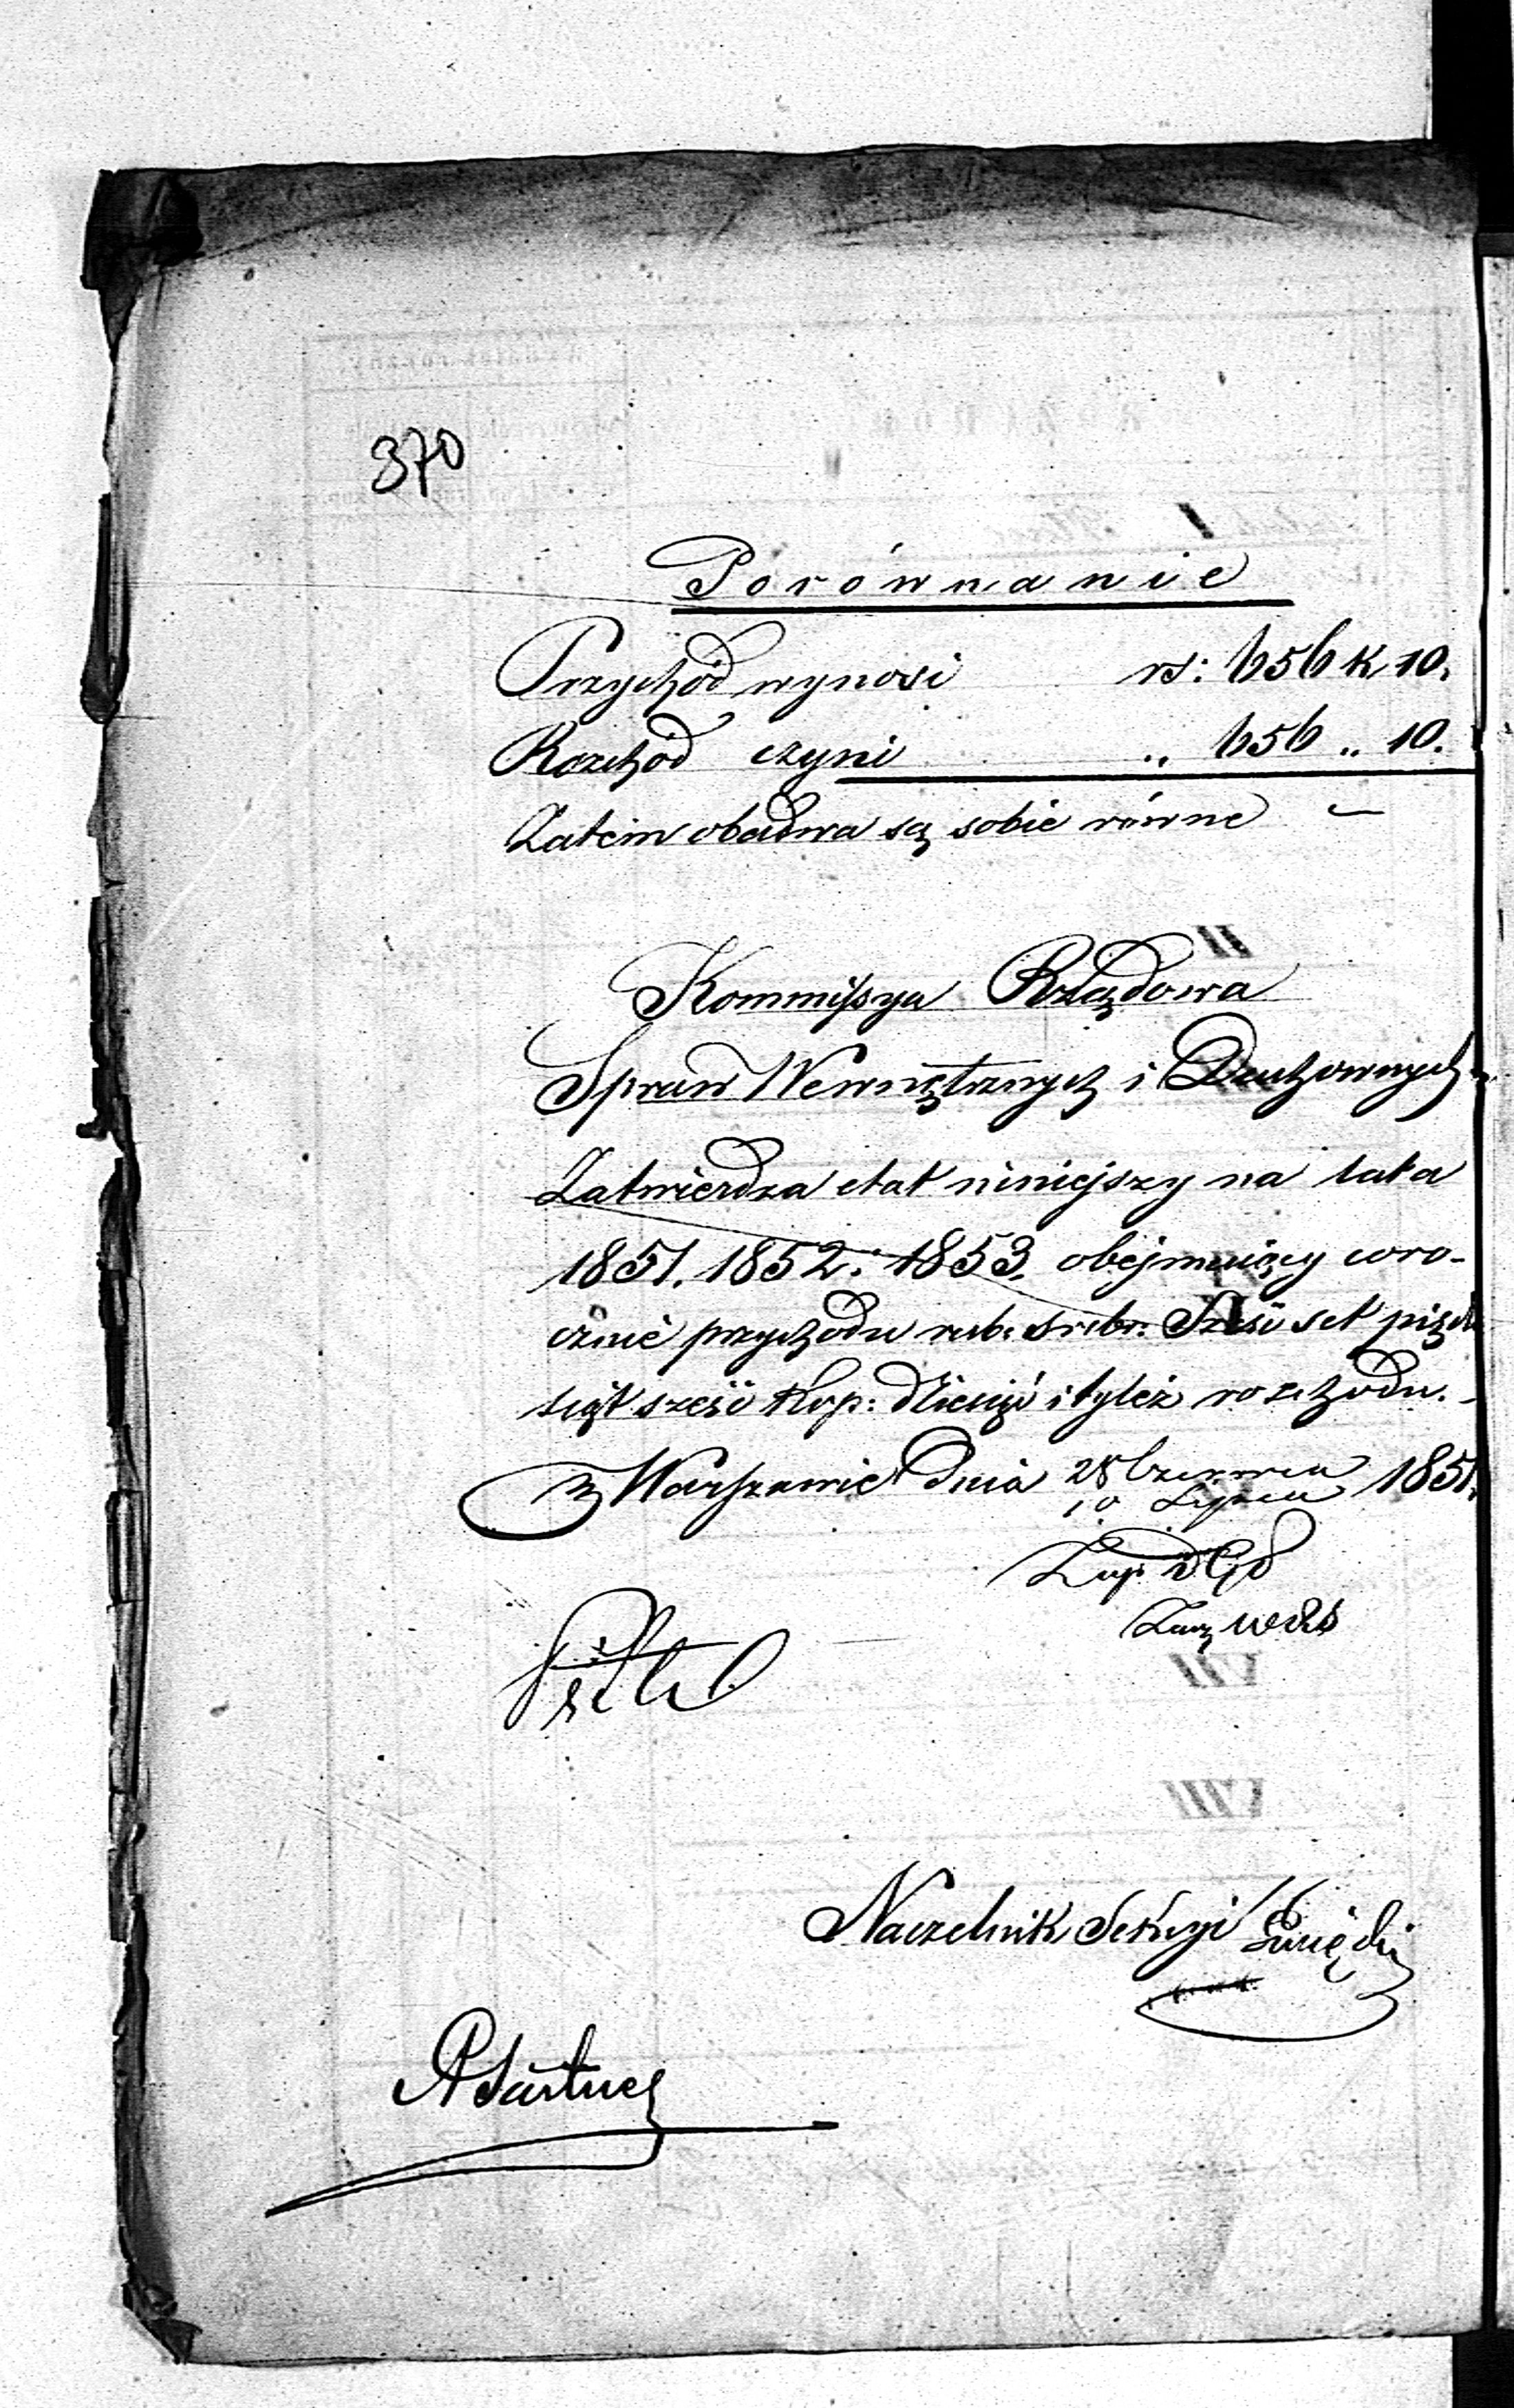 370
Porównanie
Przychód wynosi rs: 656 k 10.
Rozchód czyni „ 656 „ 10.
Zatem obadwa są sobie równe —
Kommissya Rządowa
Spraw Wewnętrznych i Duchownych
Zatwierdza etat niniejszy na lata
1851. 1852 i 1853. obejmuiący coro-
cznie przychodu rub: srebr: Sześć set pięćdzie
siąt sześć kop: dziesięć i tyleż rozchodu. –
w Warszawie dnia 28 Czerwca 1851.
10 Lipca
Naczelnik Sekcyi